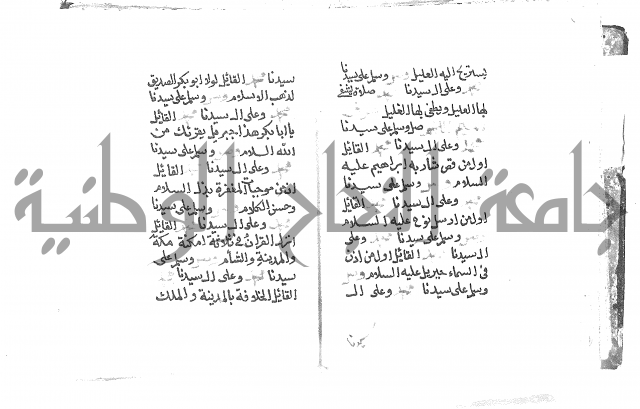 يستريح اليه العليل وسلم على سيدنا
وعلى ال سيدنا صلاة يشفى
بها العليل ويطفى بها الغليل
صل وسلم على سيدنا
وعلى ال سيدنا القائل
اول من شاب ابراهيم عليه
السلام وسلم على سيدنا
وعلى ال سيدنا القائل
اول من ارسل نوح عليه السلام
وسلم على سيدنا وعلى
ال سيدنا القائل اول من اذن
فى السماء جبريل عليه السلام
وسلم على سيدنا وعلى ال
سيدنا
سيدنا القائل لولا ابو بكر الصديق
لذهب الاسلام وسلم على سيدنا
وعلى ال سيدنا القائل
يا ابا بكر هذا جبريل يقرئك من
الله السلام وسلم على سيدنا
وعلى ال سيدنا القائل
ان من موجبات المغفرة بذل السلام
وحسن الكلام وسلم على سيدنا
وعلى ال سيدنا القائل
انزل القران فى ثلاثة امكنة مكة
والمدينة والشام وسلم على
سيدنا وعلى ال سيدنا
القائل الخلافة بالمدينة والملك
جامعة النجاح الوطنية